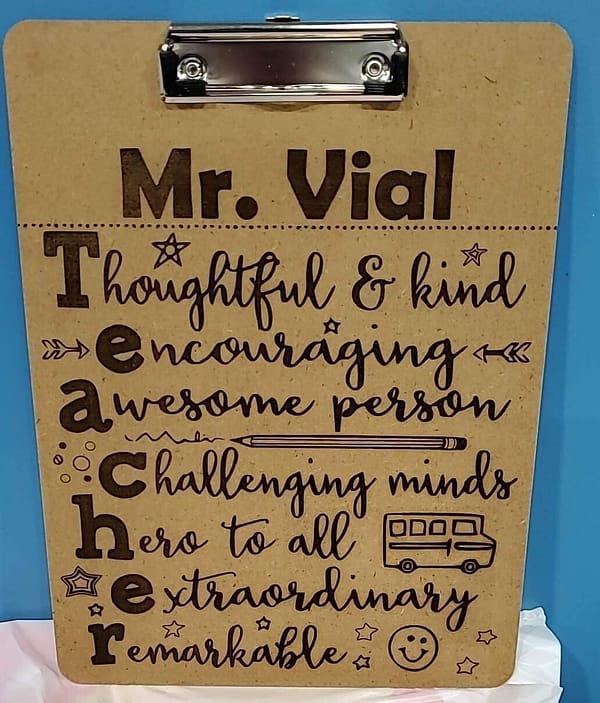 Mr. Vial
Thoughtful & kind
encouraging
awesome person
challenging minds
hero to all
extraordinary
remarkable